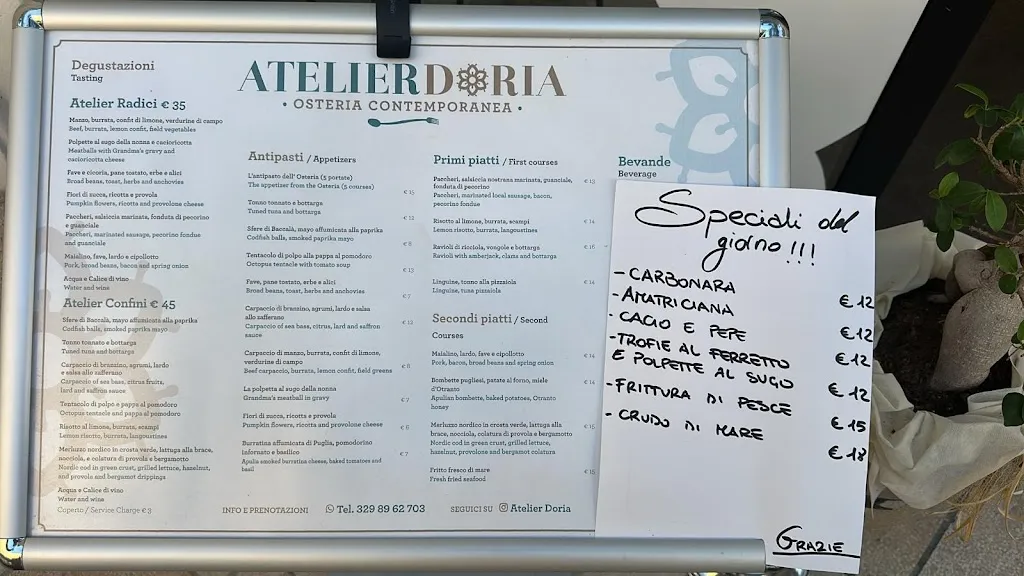 ATELIERDORIA
• OSTERIA CONTEMPORANEA •
Degustazioni
Tasting
Atelier Radici € 35
Manzo, burrata, confit di limone, verdurine di campo
Beef, burrata, lemon confit, field vegetables
Polpette al sugo della nonna e cacioricotta
Meatballs with Grandma's gravy and
cacioricotta cheese
Fave e cicoria, pane tostato, erbe e alici
Broad beans, toast, herbs and anchovies
Fiori di zucca, ricotta e provola
Pumpkin flowers, ricotta and provolone cheese
Paccheri, salsiccia marinata, fonduta di pecorino
e guanciale
Paccheri, marinated sausage, pecorino fondue
and guanciale
Maialino, fave, lardo e cipollotto
Pork, broad beans, bacon and spring onion
Acqua e Calice di vino
Water and wine
Atelier Confini € 45
Sfere di Baccalà, mayo affumicata alla paprika
Codfish balls, smoked paprika mayo
Tonno tonnato e bottarga
Tuned tuna and bottarga
Carpaccio di branzino, agrumi, lardo
e salsa allo zafferano
Carpaccio of sea bass, citrus fruits,
lard and saffron sauce
Tentacolo di polpo e pappa al pomodoro
Octopus tentacle and pappa al pomodoro
Risotto al limone, burrata, scampi
Lemon risotto, burrata, langoustines
Merluzzo nordico in crosta verde, lattuga alla brace,
nocciola, e colatura di provola e bergamotto
Nordic cod in green crust, grilled lettuce, hazelnut,
and provola and bergamot drippings
Acqua e Calice di vino
Water and wine
Coperto / Service Charge € 3
Antipasti / Appetizers
L'antipasto dell' Osteria (5 portate)
The appetiser from the Osteria (5 courses)
€ 15
Tonno tonnato e bottarga
Tuned tuna and bottarga
€ 12
Sfere di Baccalà, mayo affumicata alla paprika
Codfish balls, smoked paprika mayo
€ 8
Tentacolo di polpo alla pappa al pomodoro
Octopus tentacle with tomato soup
€ 13
Fave, pane tostato, erbe e alici
Broad beans, toast, herbs and anchovies
€ 7
Carpaccio di branzino, agrumi, lardo e salsa
allo zafferano
Carpaccio of sea bass, citrus, lard and saffron
sauce
€ 12
Carpaccio di manzo, burrata, confit di limone,
verdurine di campo
Beef carpaccio, burrata, lemon confit, field greens
€ 8
La polpetta al sugo della nonna
Grandma's meatball in gravy
€ 7
Fiori di zucca, ricotta e provola
Pumpkin flowers, ricotta and provolone cheese
€ 6
Burratina affumicata di Puglia, pomodorino
infornato e basilico
Apulia smoked burratina cheese, baked tomatoes and
basil
€ 7
Primi piatti / First courses
Paccheri, salsiccia nostrana marinata, guanciale,
fonduta di pecorino
Paccheri, marinated local sausage, bacon,
pecorino fondue
€ 13
Risotto al limone, burrata, scampi
Lemon risotto, burrata, langoustines
€ 14
Ravioli di ricciola, vongole e bottarga
Ravioli with amberjack, clams and bottarga
€ 16
Linguine, tonno alla pizzaiola
Linguine, tuna pizzaiola
€ 14
Secondi piatti / Second
Courses
Maialino, lardo, fave e cipollotto
Pork, bacon, broad beans and spring onion
€ 14
Bombette pugliesi, patate al forno, miele
d'Otranto
Apulian bombette, baked potatoes, Otranto
honey
€ 14
Merluzzo nordico in crosta verde, lattuga alla
brace, nocciola, colatura di provola e bergamotto
Nordic cod in green crust, grilled lettuce,
hazelnut, provolone and bergamot colatura
€ 15
Fritto fresco di mare
Fresh fried seafood
€ 15
Bevande
Beverage
INFO E PRENOTAZIONI Tel. 329 89 62 703 SEGUICI SU Atelier Doria
Speciali del
giorno !!!
- CARBONARA € 12
- AMATRICIANA € 12
- CACIO E PEPE € 12
- TROFIE AL FERRETTO
E POLPETTE AL SUGO € 12
- FRITTURA DI PESCE € 15
- CRUDO DI MARE € 18
GRAZIE